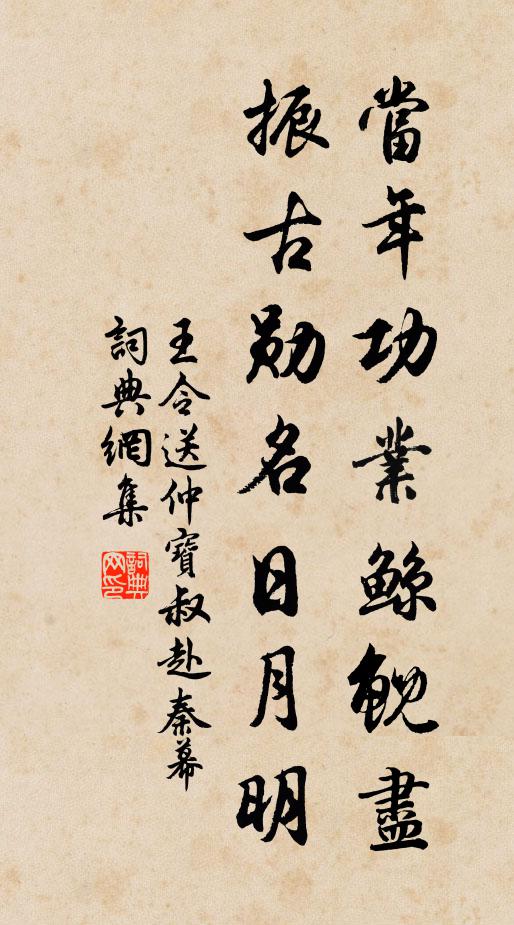 當年功業鯨鯢盡
振古勛名日月明
王令送仲寶叔赴秦幕
詞典網集
詞典網印